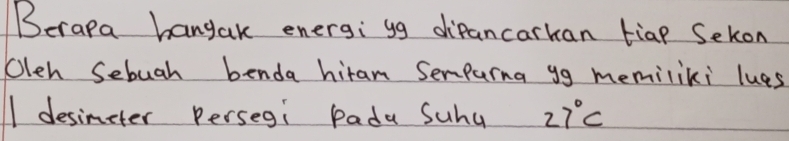 Berapa banyak energi yg dipancarkan tiap sekon
Oleh Sebuah benda hitam Sempurna yg memiliki luas
1 desimeter Persegi Pada Suhu 27°C